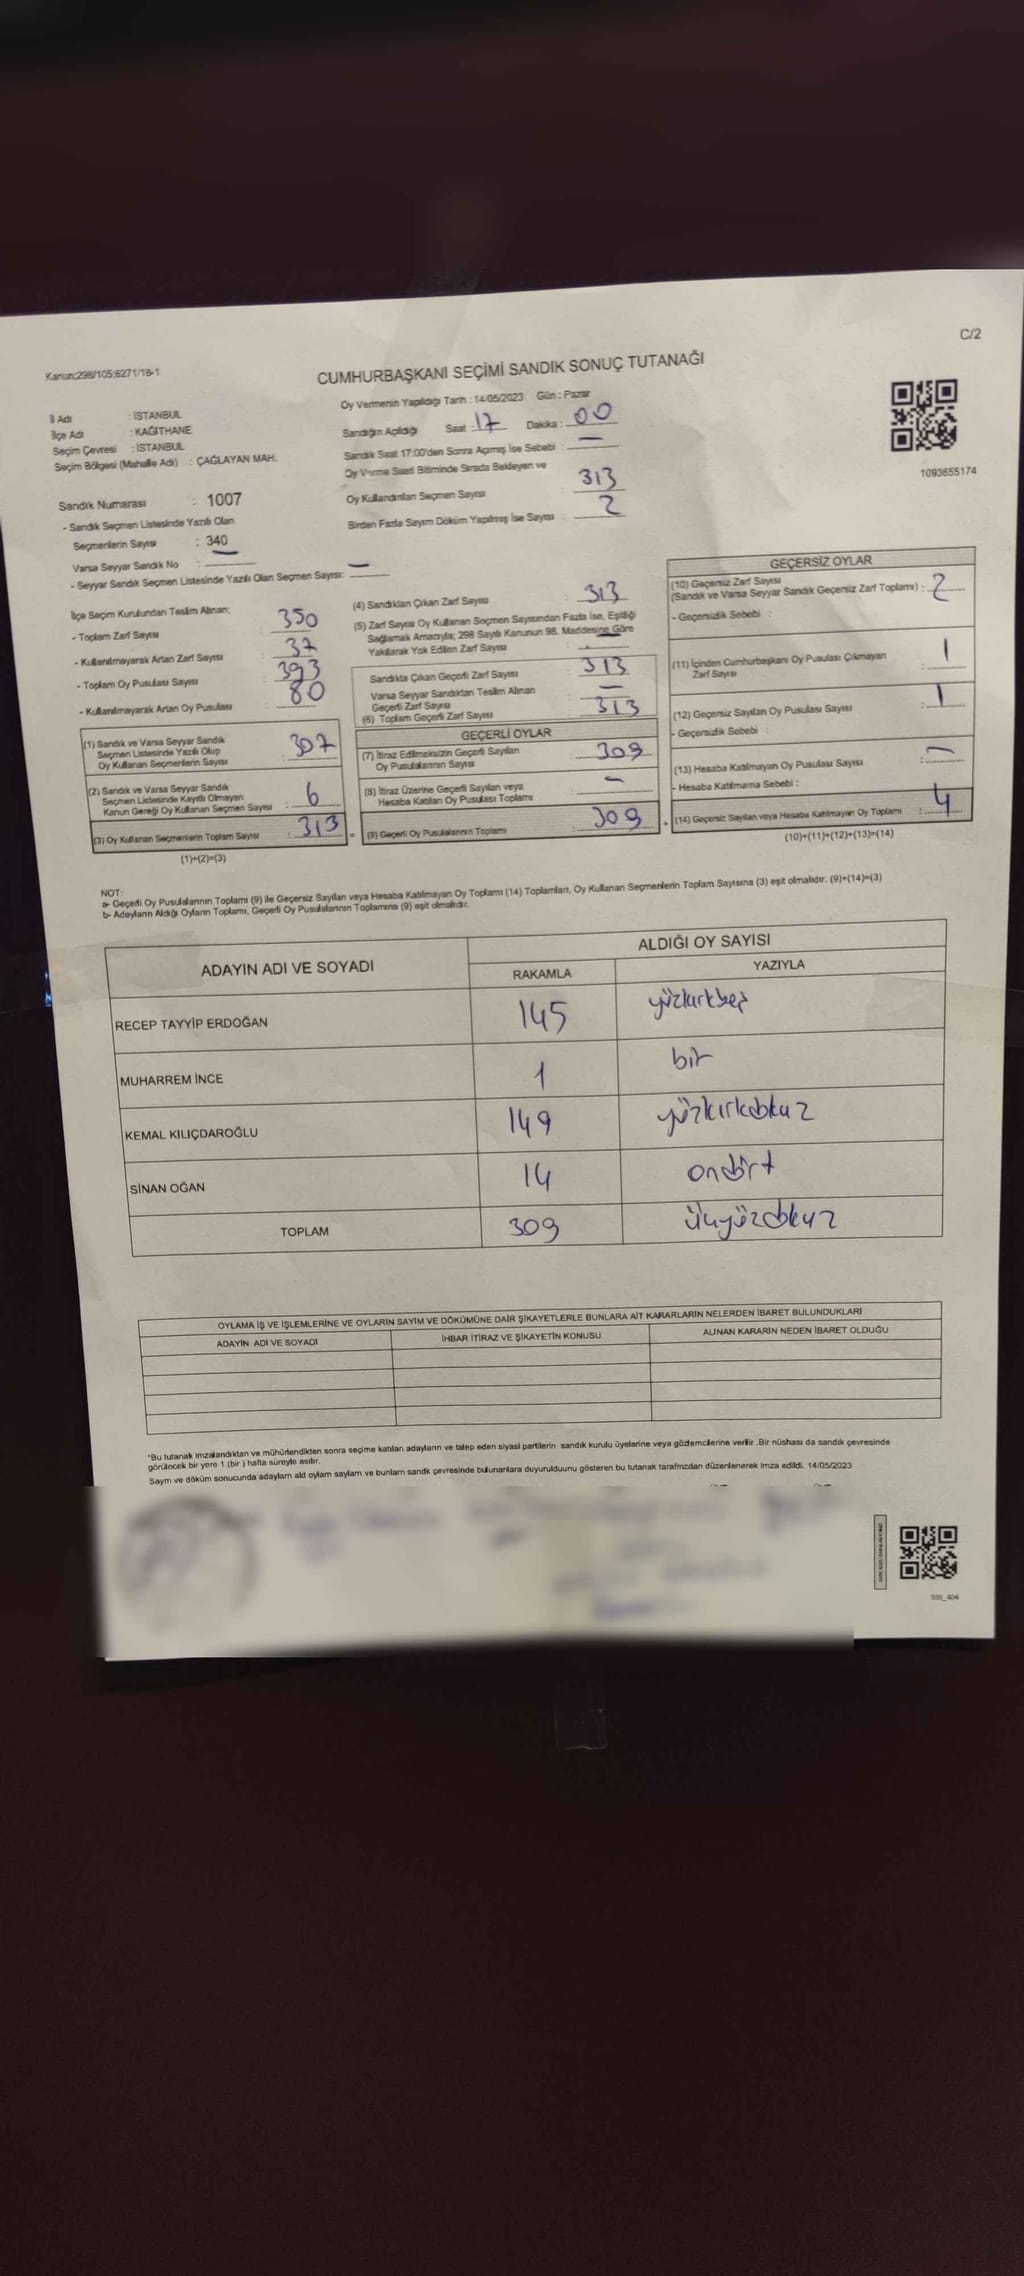 C/2
Kanun;298/105;6271/18-1
CUMHURBAŞKANI SEÇİMİ SANDIK SONUÇ TUTANAĞI
Oy Vermenin Yapıldığı Tarih : 14/05/2023 Gün : Pazar
İl Adı : İSTANBUL
İlçe Adı : KAĞITHANE
Seçim Çevresi : İSTANBUL
Seçim Bölgesi (Mahalle Adı) : ÇAĞLAYAN MAH.
Sandığın Açıldığı Saat : 17 Dakika : 00
Sandık Saat 17:00'den Sonra Açılmış İse Sebebi : —
Oy Verme Saati Bitiminde Sırada Bekleyen ve
Oy Kullandırılan Seçmen Sayısı : 313
Birden Fazla Sayım Döküm Yapılmış İse Sayısı : 2
1093655174
Sandık Numarası : 1007
- Sandık Seçmen Listesinde Yazılı Olan
Seçmenlerin Sayısı : 340
Varsa Seyyar Sandık No : —
- Seyyar Sandık Seçmen Listesinde Yazılı Olan Seçmen Sayısı: —
İlçe Seçim Kurulundan Teslim Alınan;
- Toplam Zarf Sayısı : 350
- Kullanılmayarak Artan Zarf Sayısı : 37
- Toplam Oy Pusulası Sayısı : 393
- Kullanılmayarak Artan Oy Pusulası : 80
(1) Sandık ve Varsa Seyyar Sandık
Seçmen Listesinde Yazılı Olup
Oy Kullanan Seçmenlerin Sayısı : 307
(2) Sandık ve Varsa Seyyar Sandık
Seçmen Listesinde Kayıtlı Olmayan
Kanun Gereği Oy Kullanan Seçmen Sayısı : 6
(3) Oy Kullanan Seçmenlerin Toplam Sayısı : 313
(1)+(2)=(3)
(4) Sandıktan Çıkan Zarf Sayısı : 313
(5) Zarf Sayısı Oy Kullanan Seçmen Sayısından Fazla İse, Eşitliği
Sağlamak Amacıyla; 298 Sayılı Kanunun 98. Maddesine Göre
Yakılarak Yok Edilen Zarf Sayısı : —
Sandıkta Çıkan Geçerli Zarf Sayısı : 313
Varsa Seyyar Sandıktan Teslim Alınan
Geçerli Zarf Sayısı : —
(6) Toplam Geçerli Zarf Sayısı : 313
GEÇERLİ OYLAR
(7) İtiraz Edilmeksizin Geçerli Sayılan
Oy Pusulalarının Sayısı : 309
(8) İtiraz Üzerine Geçerli Sayılan veya
Hesaba Katılan Oy Pusulası Toplamı : —
= (9) Geçerli Oy Pusulalarının Toplamı : 309
GEÇERSİZ OYLAR
(10) Geçersiz Zarf Sayısı
(Sandık ve Varsa Seyyar Sandık Geçersiz Zarf Toplamı) : 2
- Geçersizlik Sebebi :
(11) İçinden Cumhurbaşkanı Oy Pusulası Çıkmayan
Zarf Sayısı : 1
(12) Geçersiz Sayılan Oy Pusulası Sayısı : 1
- Geçersizlik Sebebi :
(13) Hesaba Katılmayan Oy Pusulası Sayısı : —
- Hesaba Katılmama Sebebi :
+ (14) Geçersiz Sayılan veya Hesaba Katılmayan Oy Toplamı : 4
(10)+(11)+(12)+(13)=(14)
NOT:
a- Geçerli Oy Pusulalarının Toplamı (9) ile Geçersiz Sayılan veya Hesaba Katılmayan Oy Toplamı (14) Toplamları, Oy Kullanan Seçmenlerin Toplam Sayısına (3) eşit olmalıdır. (9)+(14)=(3)
b- Adayların Aldığı Oyların Toplamı, Geçerli Oy Pusulalarının Toplamına (9) eşit olmalıdır.
ADAYIN ADI VE SOYADI ALDIĞI OY SAYISI
RAKAMLA YAZIYLA
RECEP TAYYİP ERDOĞAN 145 yüzkırkbeş
MUHARREM İNCE 1 bir
KEMAL KILIÇDAROĞLU 149 yüzkırkdokuz
SİNAN OĞAN 14 ondört
TOPLAM 309 üçyüzdokuz
OYLAMA İŞ VE İŞLEMLERİNE VE OYLARIN SAYIM VE DÖKÜMÜNE DAİR ŞİKAYETLERLE BUNLARA AİT KARARLARIN NELERDEN İBARET BULUNDUKLARI
ADAYIN ADI VE SOYADI İHBAR İTİRAZ VE ŞİKAYETİN KONUSU ALINAN KARARIN NEDEN İBARET OLDUĞU
*Bu tutanak imzalandıktan ve mühürlendikten sonra seçime katılan adayların ve talep eden siyasi partilerin sandık kurulu üyelerine veya gözlemcilerine verilir .Bir nüshası da sandık çevresinde
görülecek bir yere 1 (bir ) hafta süreyle asılır.
Sayım ve döküm sonucunda adayların ald oyların sayların ve bunların sandk çevresinde bulunanlara duyurulduunu gösteren bu tutanak tarafmzdan düzenlenerek imza edildi. 14/05/2023
SSI_404